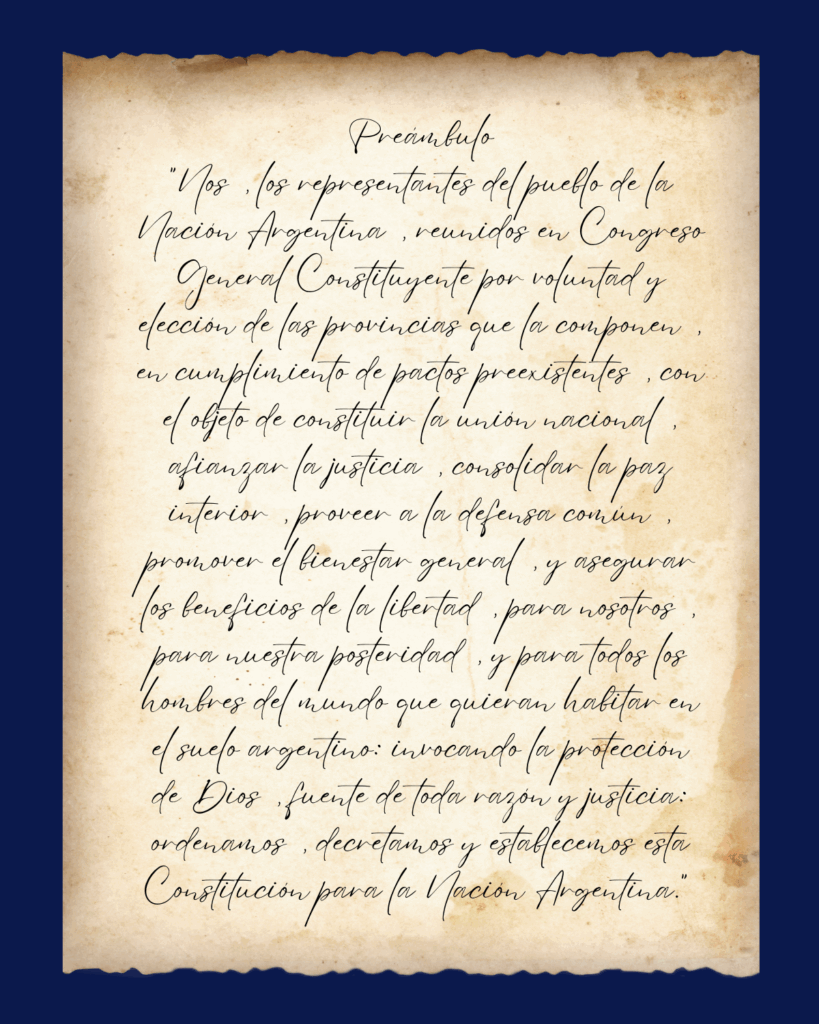 Preámbulo
"Nos , los representantes del pueblo de la
Nación Argentina , reunidos en Congreso
General Constituyente por voluntad y
elección de las provincias que la componen ,
en cumplimiento de pactos preexistentes , con
el objeto de constituir la unión nacional ,
afianzar la justicia , consolidar la paz
interior , proveer a la defensa común ,
promover el bienestar general , y asegurar
los beneficios de la libertad , para nosotros ,
para nuestra posteridad , y para todos los
hombres del mundo que quieran habitar en
el suelo argentino: invocando la protección
de Dios , fuente de toda razón y justicia:
ordenamos , decretamos y establecemos esta
Constitución para la Nación Argentina."